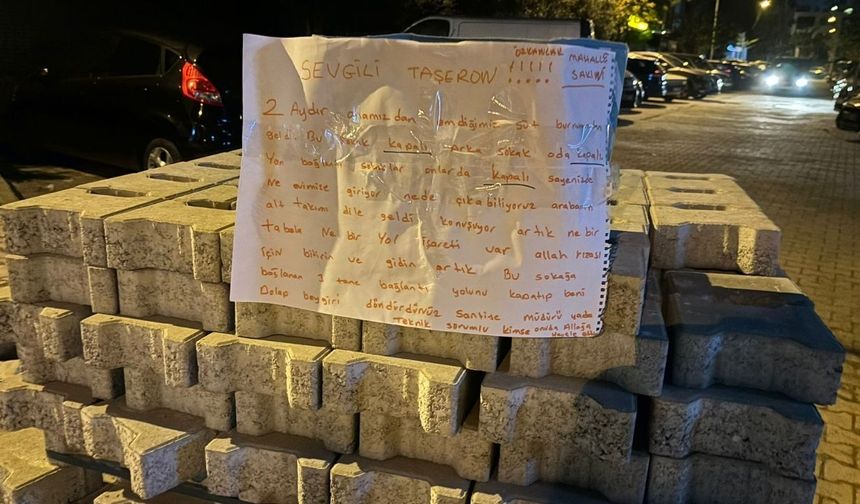 SEVGİLİ TAŞERON
ÖZKANLAR
!!!!!
MAHALLE
SAKİNİ
2 Aydır anamızdan emdiğimiz süt burnumuzdan
geldi. Bu sokak kapalı arka sokak oda kapalı
Yan bağlantı sokaklar onlarda kapalı sayenizde
Ne evimize giriyor nede çıkabiliyoruz arabanın
alt takım dile geldi konuşuyor artık ne bir
tabela Ne bir Yol işareti var allah rızası
için bitirin ve gidin artık Bu sokağa
bağlanan 3 tane bağlantı yolunu kapatıp beni
Dolap beygiri döndürdünüz Şantiye müdürü yada
Teknik sorumlu kimse onuda Allaha